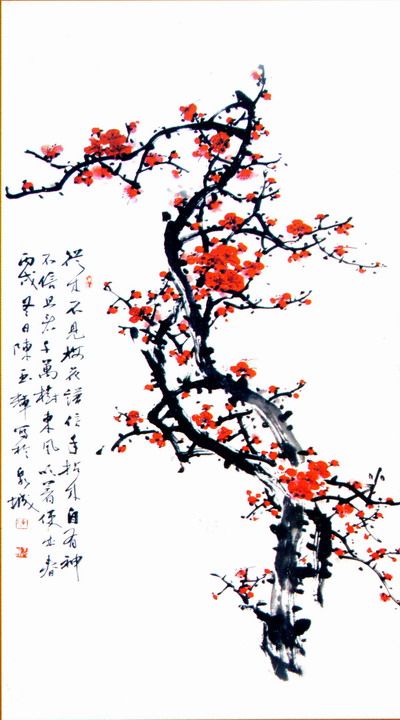 從来不見梅花譜信手拈来自有神
不信且看千萬樹東風吹著便生春
丙戌冬日陳玉輝寫於泉城